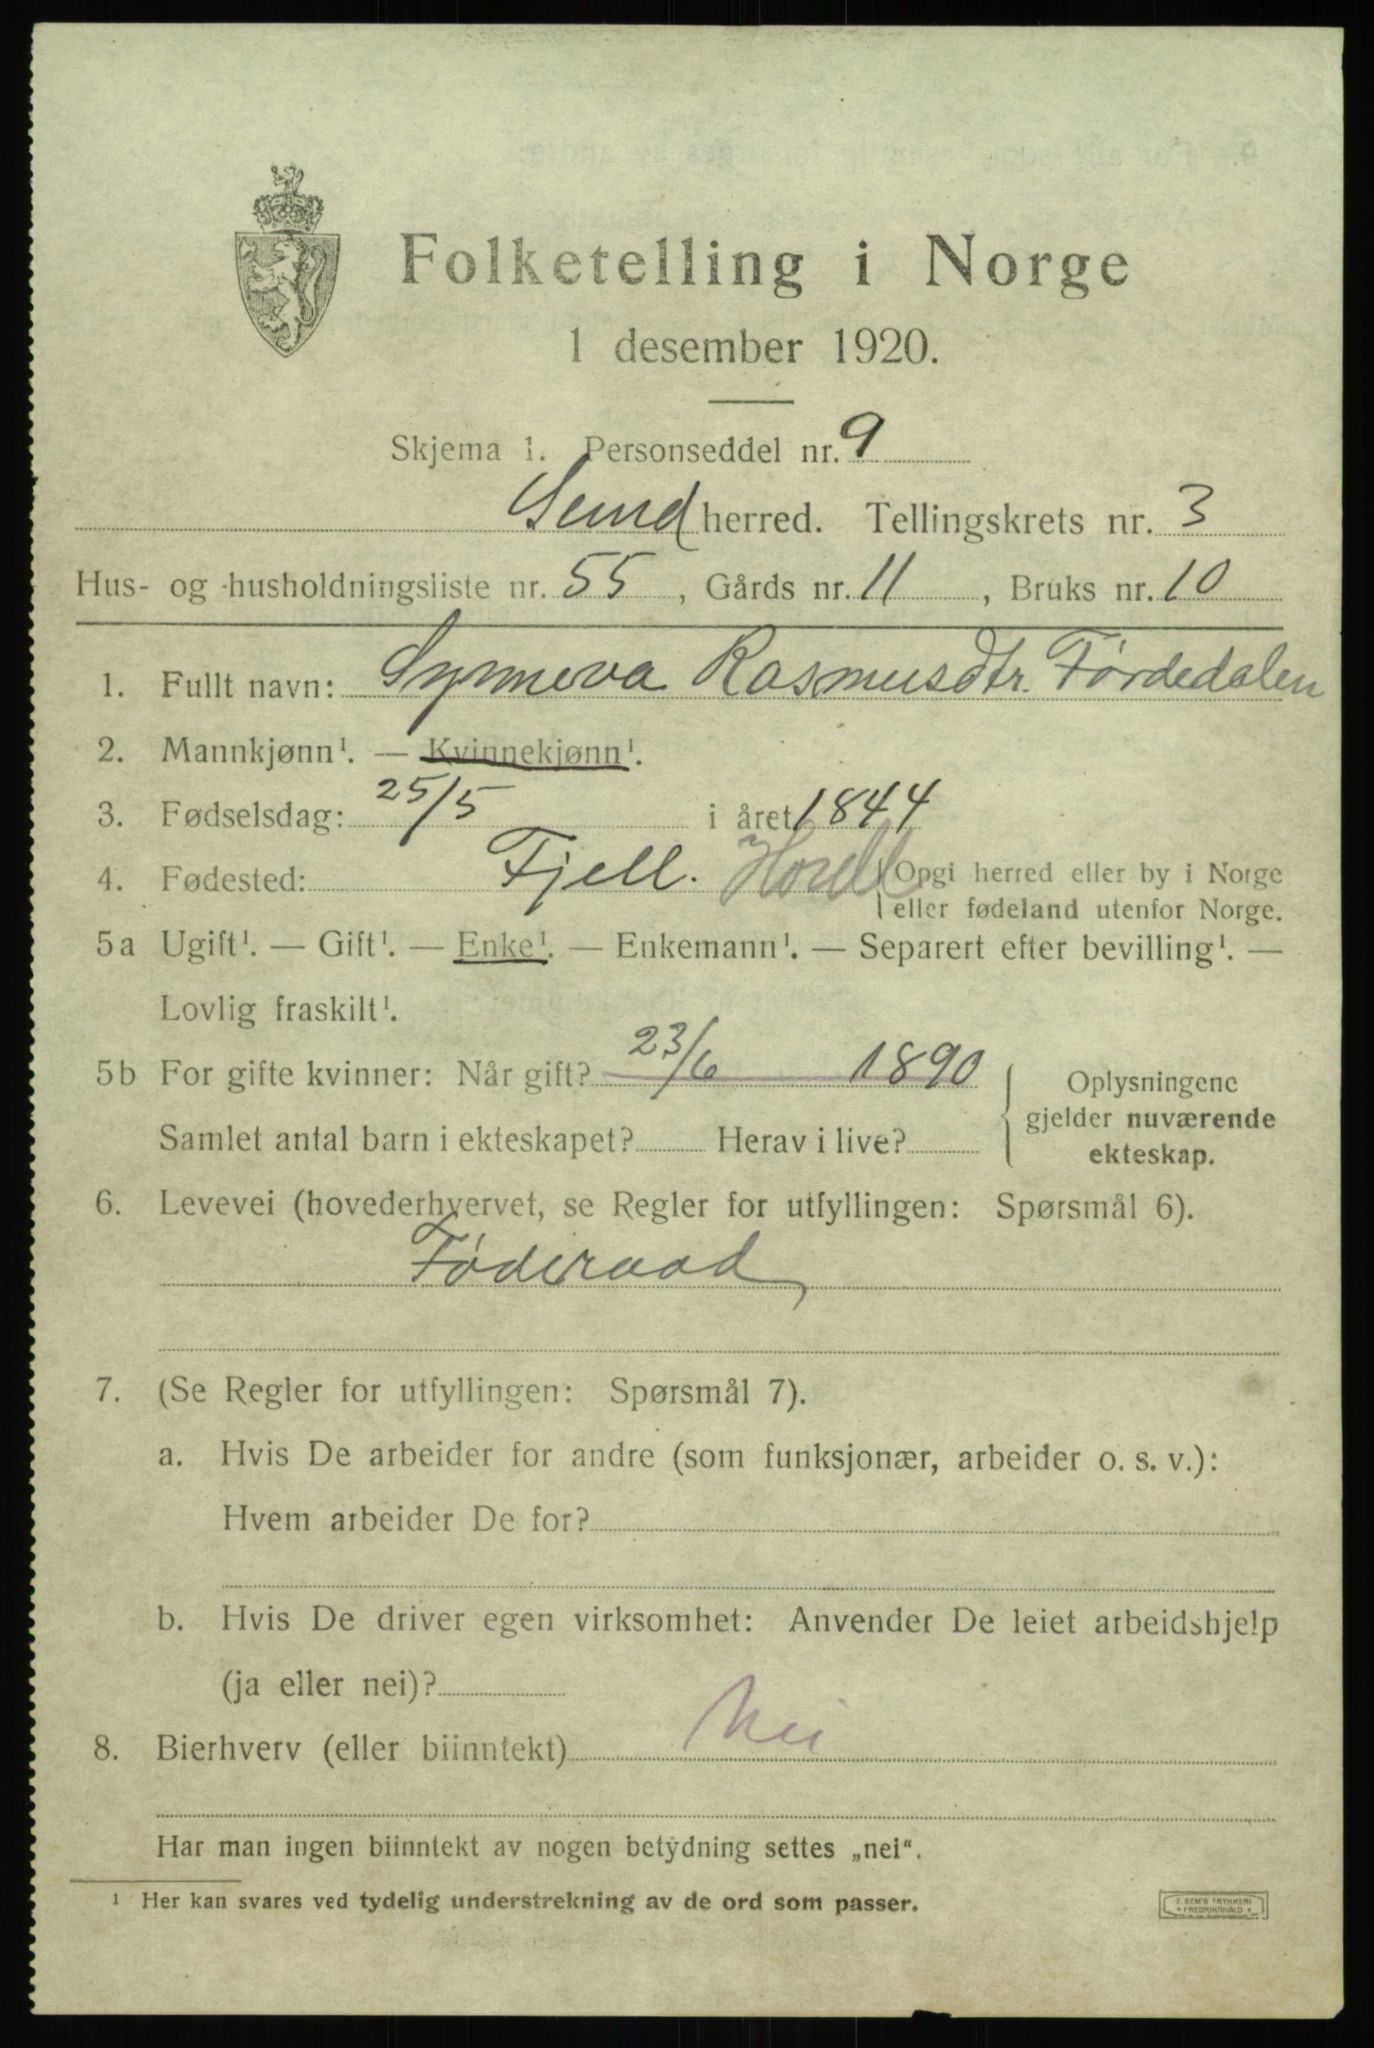 Folketelling i Norge
1 desember 1920.
Skjema 1. Personseddel nr. 9
Sund herred. Tellingskrets nr. 3
Hus- og husholdningsliste nr. 55, Gårds nr. 11, Bruks nr. 10
1. Fullt navn: Synneva Rasmusdtr. Førdedalen
2. Mannkjønn¹. — Kvinnekjønn¹.
3. Fødselsdag: 25/5 i året 1844
4. Fødested: Fjell. Hordl (Opgi herred eller by i Norge
eller fødeland utenfor Norge.
5a Ugift¹. — Gift¹. — Enke¹. — Enkemann¹. — Separert efter bevilling¹. —
Lovlig fraskilt¹.
5b For gifte kvinner: Når gift? 23/6 1890
Samlet antal barn i ekteskapet? Herav i live?
Oplysningene
gjelder nuværende
ekteskap.
6. Levevei (hovederhvervet, se Regler for utfyllingen: Spørsmål 6).
Føderaad
7. (Se Regler for utfyllingen: Spørsmål 7).
a. Hvis De arbeider for andre (som funksjonær, arbeider o. s. v.):
Hvem arbeider De for?
b. Hvis De driver egen virksomhet: Anvender De leiet arbeidshjelp
(ja eller nei)?
8. Bierhverv (eller biinntekt) Nei
Har man ingen biinntekt av nogen betydning settes „nei“.
¹ Her kan svares ved tydelig understrekning av de ord som passer.
E. SEM'S TRYKKERI
FREDRIKSHALD